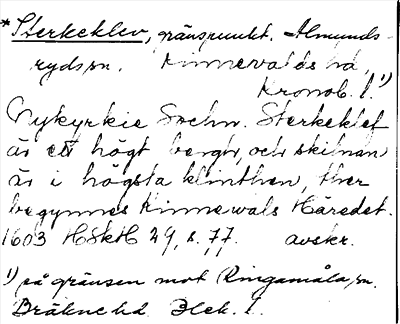 *Sterkeklev, gränspunkt. Almunds-
ryds sn. Kinnevalds hd,
Kronob. l.¹⁾
Nykyrkie Sochn. Sterkeklef
är ett högt bergh, och skilnan
är i högsta klinthen, ther
begynnes Kinnewals Häredet.
1603 HSkH 29, s. 77. avskr.
¹⁾ på gränsen mot Ringamåla sn.
Bräkne hd. Blek. l.